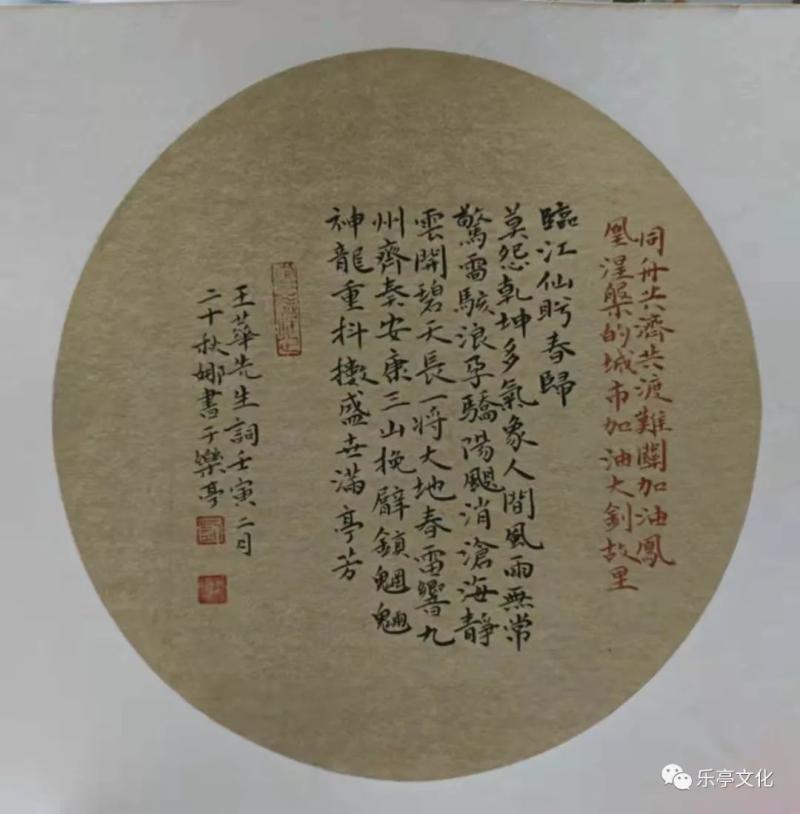 同舟共濟共渡難關加油鳳
凰涅槃的城市加油大釗故里
臨江仙盼春歸
莫怨乾坤多氣象人間風雨無常
驚雷駭浪孕驕陽颶消滄海靜
雲開碧天長一將大地春雷響九
州齊奏安康三山挽臂鎮魍魎
神龍重抖擻盛世滿亭芳
王華先生詞壬寅二月
二十秋娜書于樂亭
乐亭文化